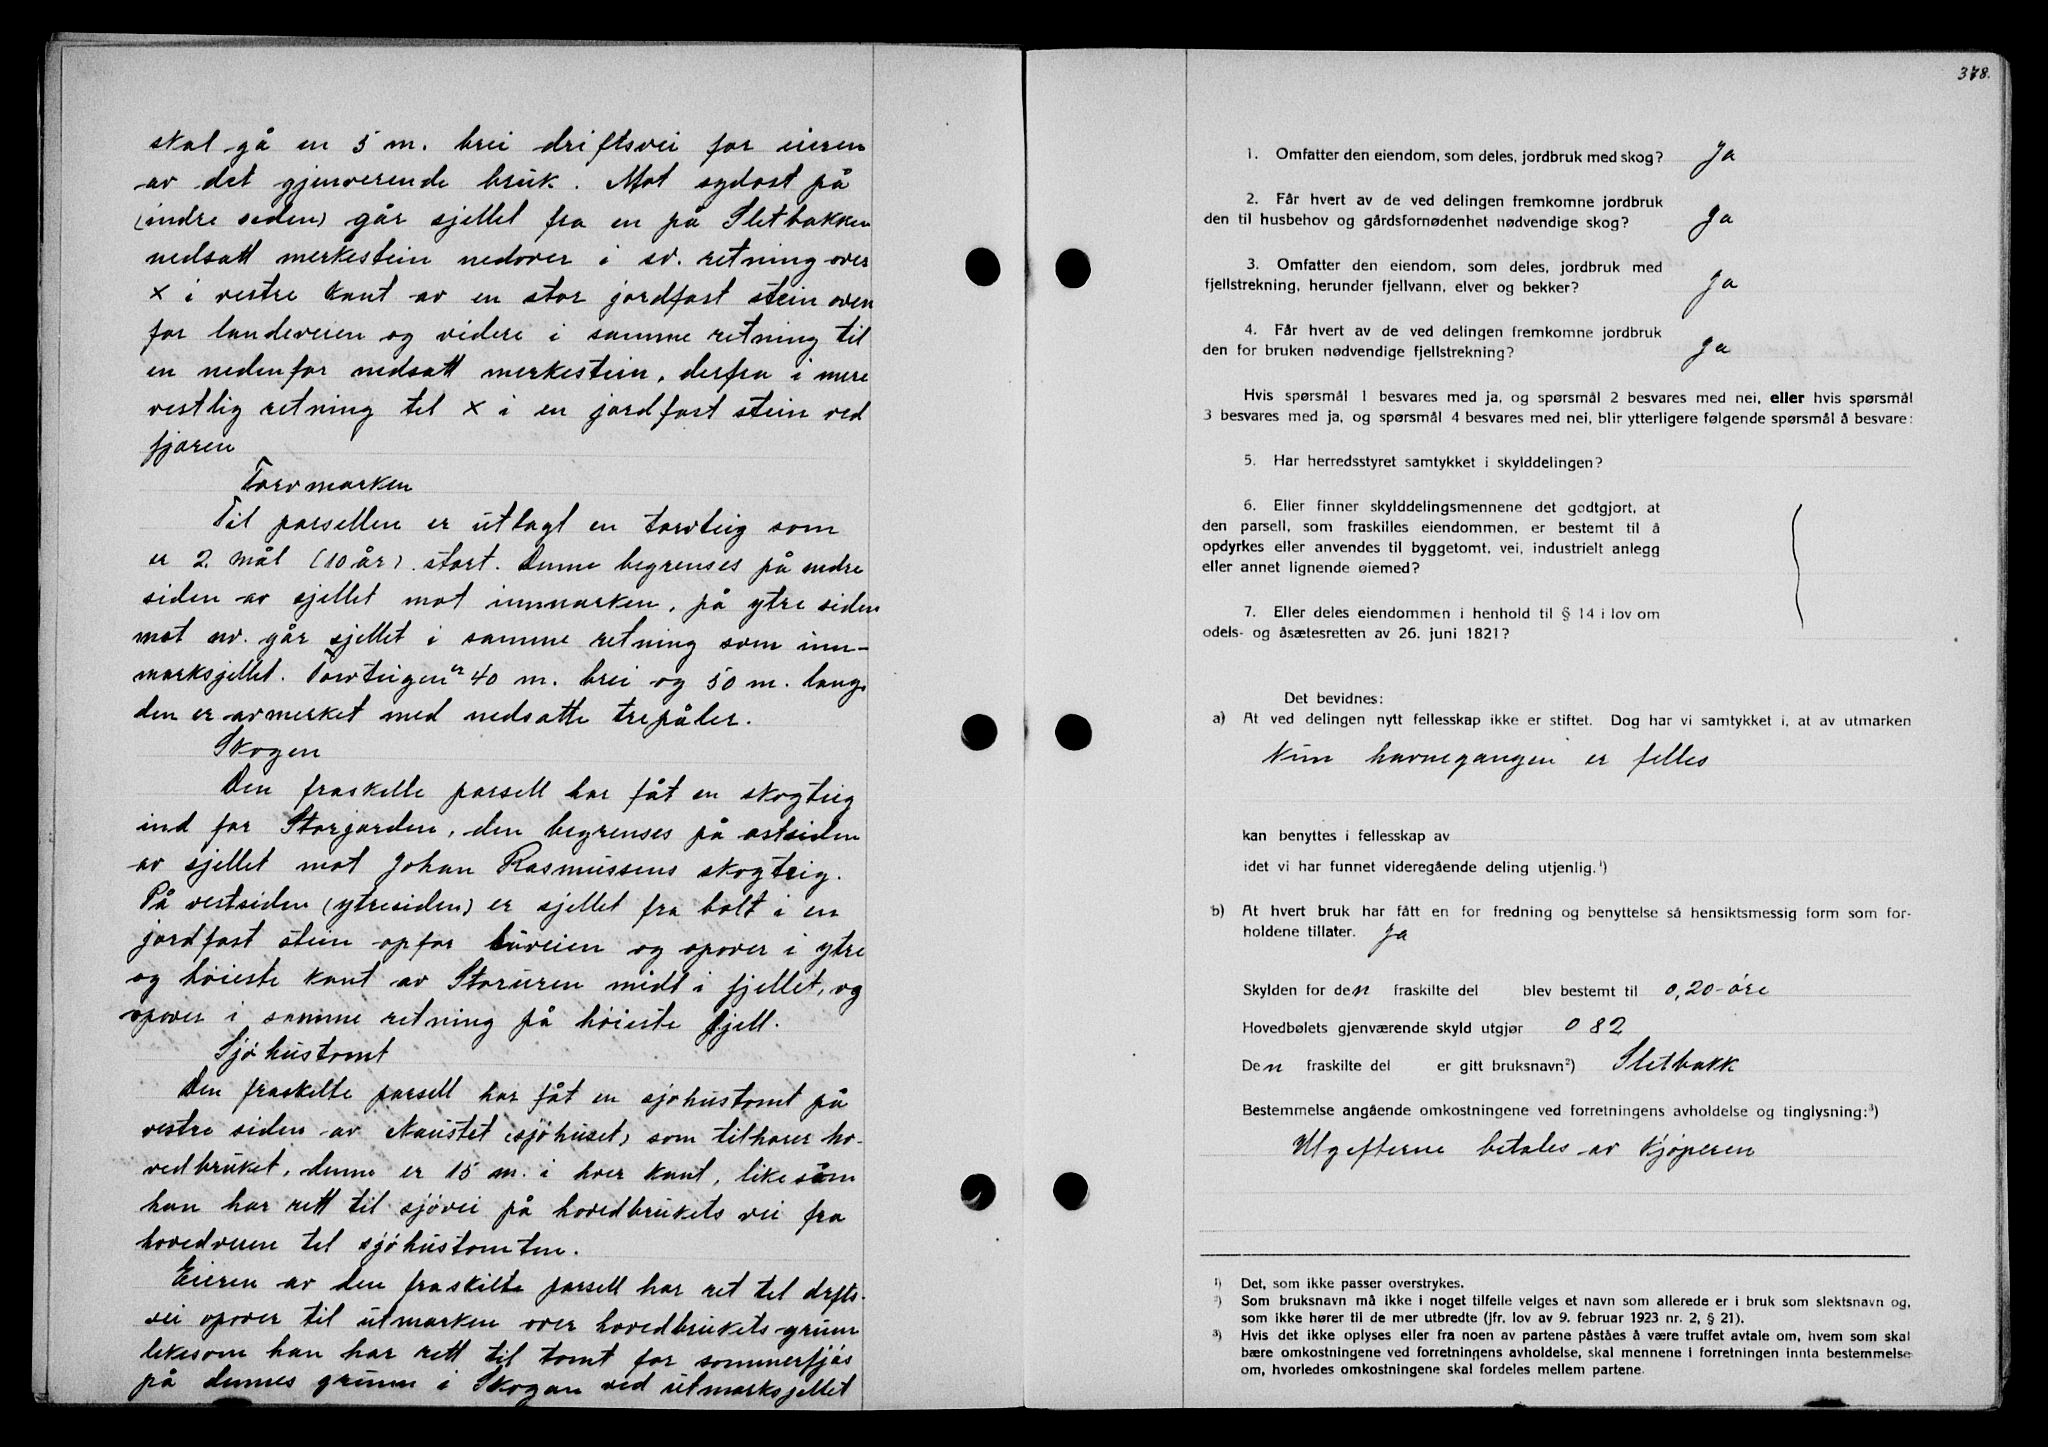 skal gå en 5 m. brei driftsvei for eieren
av det gjenverende bruk. Mot sydost på
(indre siden) går sjellet fra en på Sletbakken
nedsatt merkestein nedover i sv. retning over
x i vestre kant av en stor jordfast stein oven
for landeveien og videre i samme retning til
en nedenfor nedsatt merkestein, derfra i mere
vestlig retning til x i en jordfast stein ved
fjæren
Torvmarken
Til parsellen er utlagt en torvteig som
er 2 mål (10 år) stort. Denne begrenses på nedre
siden av sjellet mot innmarken, på ytre siden
mot nv. går sjellet i samme retning som inn-
marksjellet. Torvteigen er 40 m. brei og 50 m. lang.
den er avmerket med nedsatte trepåler.
Skogen
Den fraskelte parsell har fåt en skogteig
ind for Storjorden, den begrenses på østsiden
av sjellet mot Johan Rasmussens skogteig.
På vestsiden (ytresiden) er sjellet fra bolt i en
jordfast stein opfor buveien og opover i ytre
og høieste kant av Storuren midt i fjellet, og
opover i samme retning på høieste fjell.
Sjøhustomt
Den fraskelte parsell har fåt en sjøhustomt på
vestre siden av Naustet (sjøhuset) som tilhører ho-
vedbruket, denne er 15 m. i hver kant, like som
han har rett til sjøvei på hovedbrukets vei fra
hovedveien til sjøhustomten.
Eieren av den fraskilte parsell har ret til drifts-
vei opover til utmarken over hovedbrukets grunn
likesom han har rett til tomt for sommerfjøs
på dennes grunn i Skogan ved utmarksjellet
378.
1. Omfatter den eiendom, som deles, jordbruk med skog? Ja
2. Får hvert av de ved delingen fremkomne jordbruk
den til husbehov og gårdsfornødenhet nødvendige skog? Ja
3. Omfatter den eiendom, som deles, jordbruk med
fjellstrekning, herunder fjellvann, elver og bekker? Ja
4. Får hvert av de ved delingen fremkomne jordbruk
den for bruken nødvendige fjellstrekning? Ja
Hvis spørsmål 1 besvares med ja, og spørsmål 2 besvares med nei, eller hvis spørsmål
3 besvares med ja, og spørsmål 4 besvares med nei, blir ytterligere følgende spørsmål å besvare:
5. Har herredsstyret samtykket i skylddelingen?
6. Eller finner skylddelingsmennene det godtgjort, at
den parsell, som fraskilles eiendommen, er bestemt til å
opdyrkes eller anvendes til byggetomt, vei, industrielt anlegg
eller annet lignende øiemed?
7. Eller deles eiendommen i henhold til § 14 i lov om
odels- og åsætesretten av 26. juni 1821?
Det bevidnes:
a) At ved delingen nytt fellesskap ikke er stiftet. Dog har vi samtykket i, at av utmarken
Kun havnegangen er felles
kan benyttes i fellesskap av
idet vi har funnet videregående deling utjenlig.¹)
b) At hvert bruk har fått en for fredning og benyttelse så hensiktsmessig form som for-
holdene tillater. Ja
Skylden for den fraskilte del blev bestemt til 0,20 øre
Hovedbølets gjenværende skyld utgjør 0 82
Den fraskilte del er gitt bruksnavn²) Sletbakk
Bestemmelse angående omkostningene ved forretningens avholdelse og tinglysning:³)
Utgifterne betales av kjøperen
¹) Det, som ikke passer overstrykes.
²) Som bruksnavn må ikke i noget tilfelle velges et navn som allerede er i bruk som slektsnavn og,
som ikke hører til de mer utbredte (jfr. lov av 9. februar 1923 nr. 2, § 21).
³) Hvis det ikke oplyses eller fra noen av partene påståes å være truffet avtale om, hvem som skal
bære omkostningene ved forretningens avholdelse, skal mennene i forretningen innta bestemmelse
om, hvorledes omkostningene skal fordeles mellem partene.